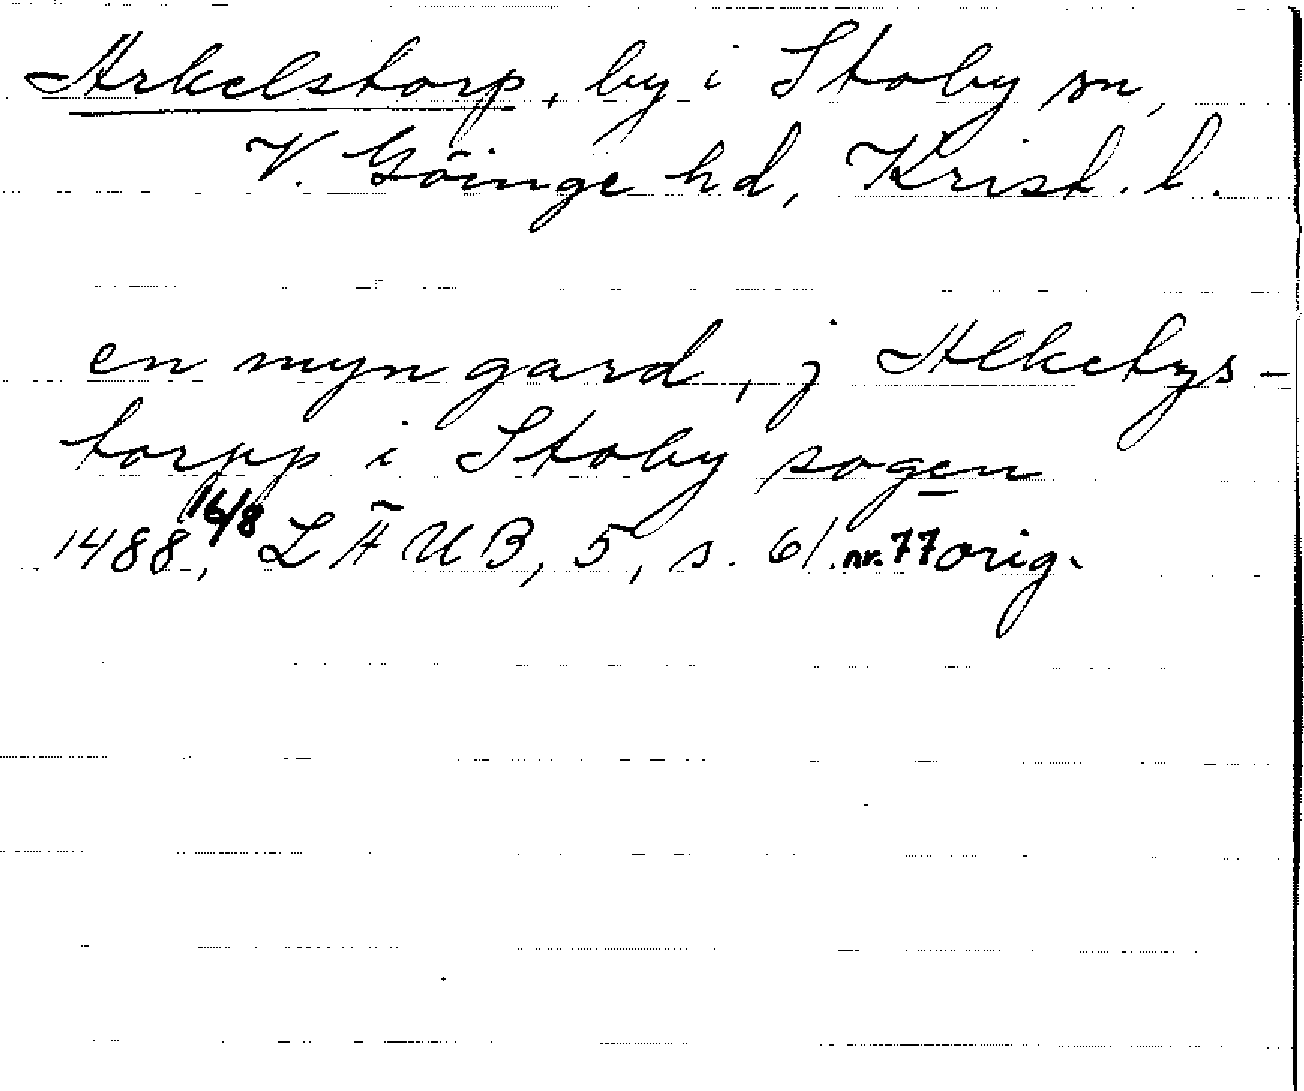 Arkelstorp, by i Stoby sn,
V. Göinge hd, Krist. l.
en myn gard, j Alketys-
torpp i Stoby sogen
1488, 16/8 LÄUB, 5, s. 61. nr. 77 orig.